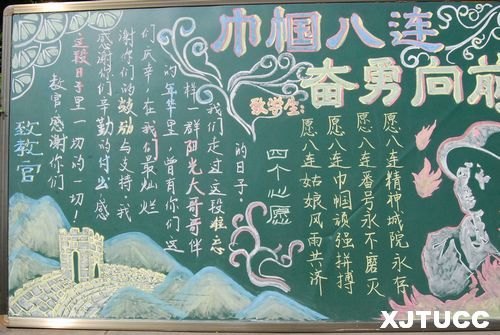 巾帼八连
奋勇向前
致教官
教官感谢你们
这段日子里一切的一切!
感谢你们辛勤的付出感
谢你们的鼓励与支持.我
们庆幸,在我们最灿烂
的年华里,曾有你们这
样一群阳光大哥哥伴
我们走过这段难忘
的日子。
致学生:
四个心愿
愿八连姑娘风雨共济
愿八连巾帼顽强拼搏
愿八连番号永不磨灭
愿八连精神城院永存
XJTUCC